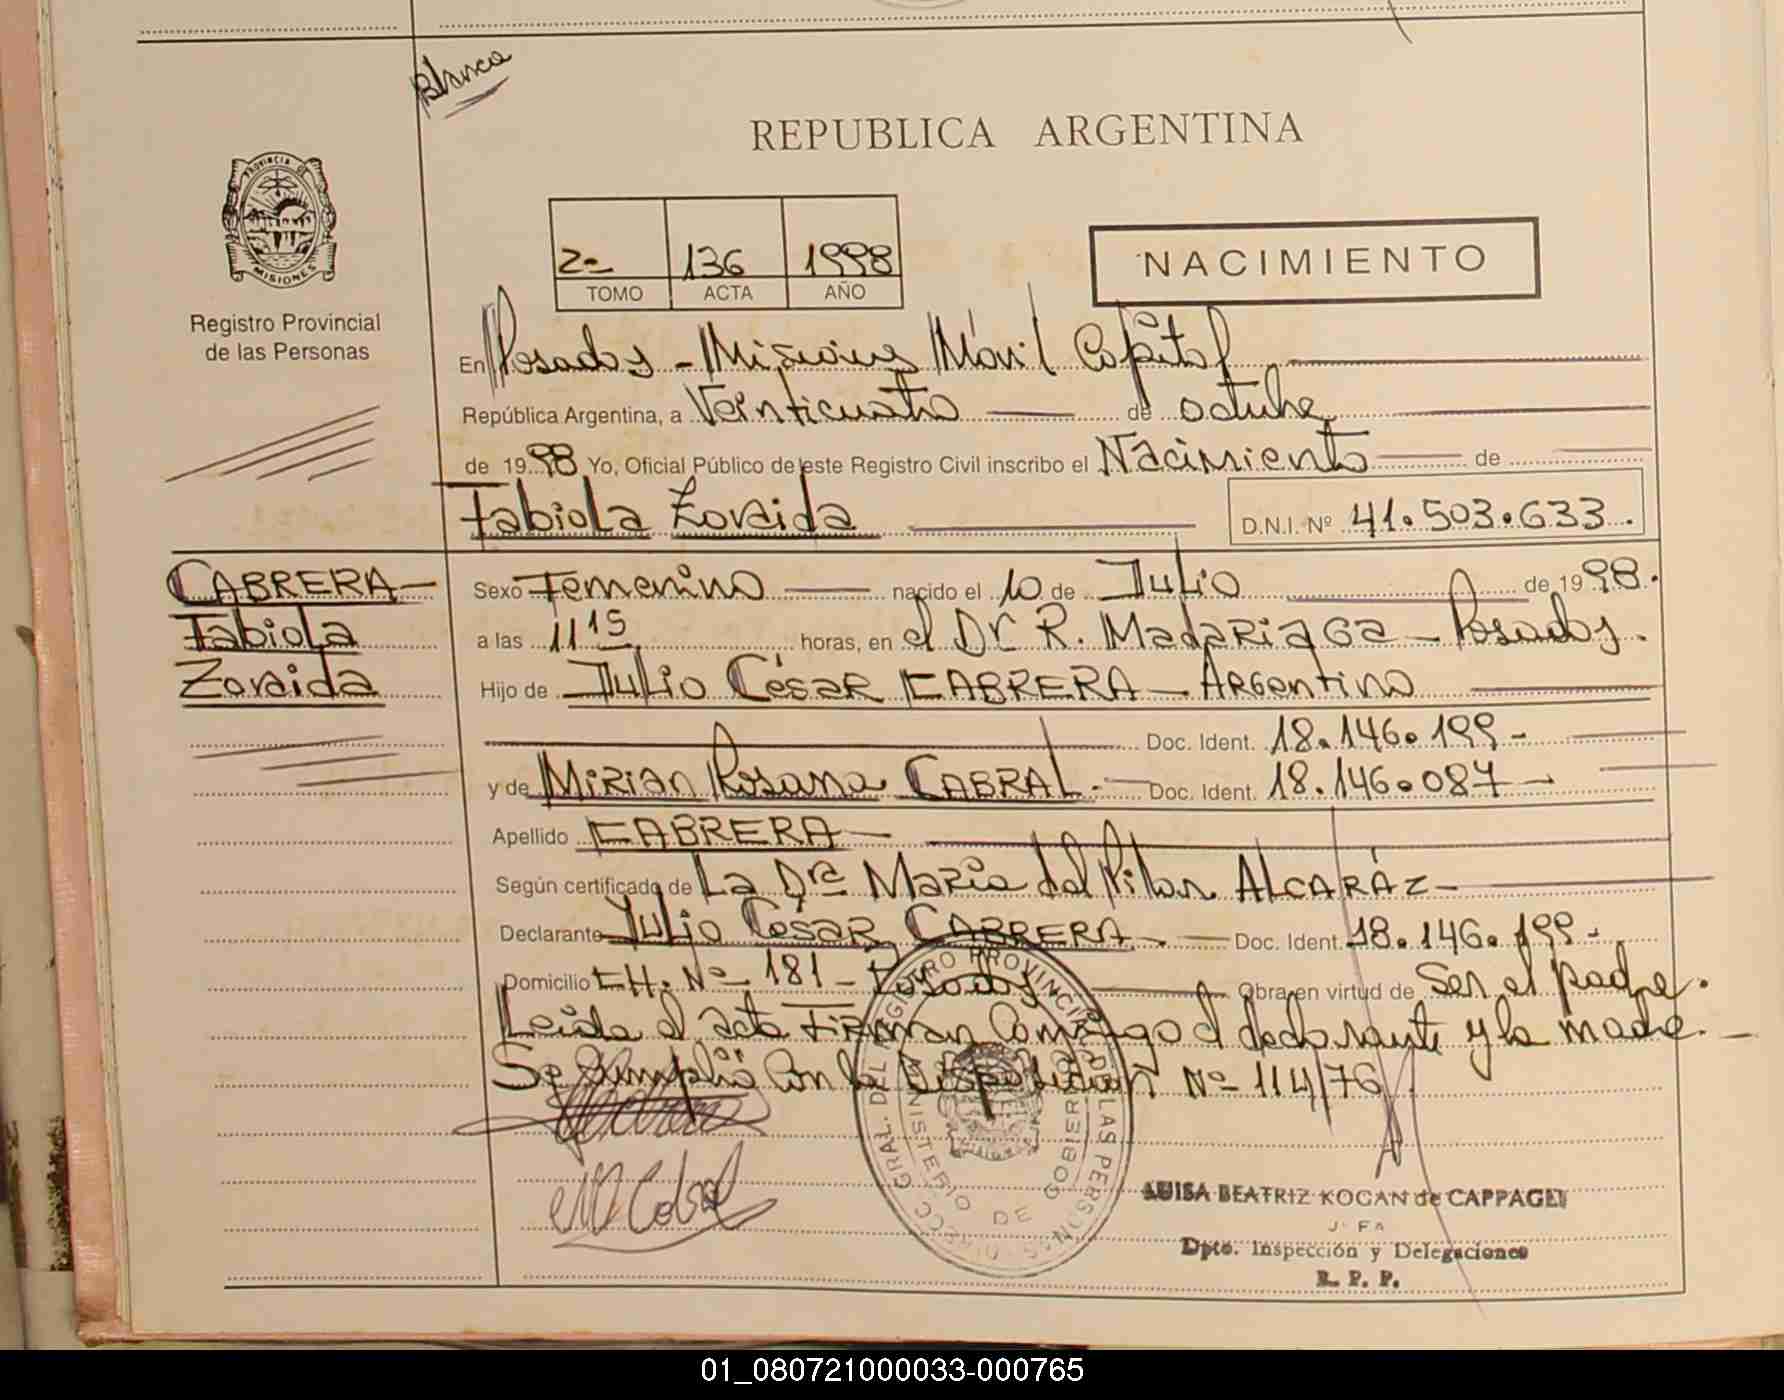 Blanca
REPUBLICA ARGENTINA
PROVINCIA DE
MISIONES
Registro Provincial
de las Personas
2- 136 1998
TOMO ACTA AÑO
NACIMIENTO
En Posadas - Misiones Móvil Capital
República Argentina, a Veinticuatro de octubre
de 1998 Yo, Oficial Público de este Registro Civil inscribo el Nacimiento de
Fabiola Zoraida D.N.I. Nº 41.503.633.
CABRERA-
Fabiola
Zoraida
Sexo Femenino nacido el 10 de Julio de 1998.
a las 11 15 horas, en el Dr R. Madariaga - Posadas.
Hijo de Julio César CABRERA - Argentino
Doc. Ident. 18.146.199-
y de Mirian Rosana CABRAL- Doc. Ident. 18.146.087-
Apellido CABRERA-
Según certificado de La Dra María del Pilar ALCARÁZ-
Declarante Julio César CABRERA.- Doc. Ident. 18.146.199-
Domicilio CH. Nº 181 - Posadas Obra en virtud de ser el padre.
Leída el acta Firman Conmigo el declarante y la madre.-
Se Cumplió Con la Disposición Nº 114/76
GRAL. DEL REGISTRO PROVINCIAL DE LAS PERSONAS
MINISTERIO DE GOBIERNO
M Cabral
LUISA BEATRIZ KOGAN de CAPPAGLI
Dpto. Inspección y Delegaciones
R. P. P.
01_080721000033-000765